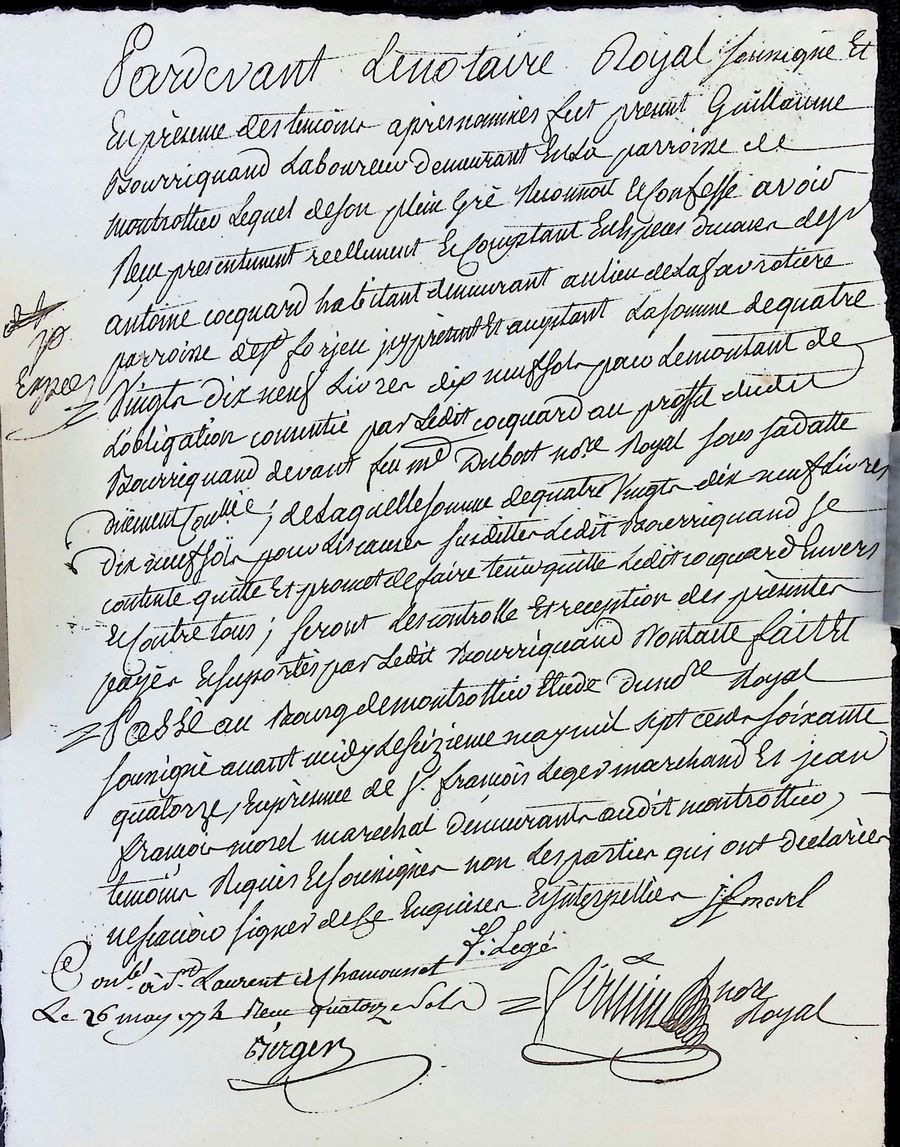 Pardevant Lenotaire Royal sousigné Et
En présence destemoins apresnommés fut présent Guillaume
Bourriquand Laboureur demeurant En La parroisse de
montrottier Lequel de son plein Gré Reconnoit Et Confesse avoir
Reçu présentement reellement Et Comptant En Espèces du cours de sr
antoine cocquard habitant demeurant au lieu de La favrotière
parroisse de st forjeu icy présent Et acceptant La somme de quatre
Vingts dix neuf Livres dix neuf sols pour Le montant de
L'obligation consentie par Ledit cocquard au proffit dudit
Bourriquand devant feu me Dubost nore Royal sous sa datte
düement ; de Laquelle somme de quatre Vingts dix neuf Livres
dix neuf sols pour Les causes susdittes Ledit Bourriquand se
contente quitte Et promet de faire tenir quitte Ledit cocquard Envers
Et Contre tous ; seront Les controlle Et reception des présentes
payés Et suportés par Ledit Bourriquand Dont acte fait Et
Passé au Bourg de montrottier Etude du nore Royal
sousigné avant midy Le seizieme may mil sept cents soixante
quatorze, En présence de s. françois Leger marchand Et jean
françois morel marechal demeurants audit montrottier,
temoins Requis Et sousignés non Les parties qui ont declarées
ne sçavoir signer de Ce Enquises Et Interpellées j f morel
f. Legé
Conlé à st Laurent de Chamousset
Le 26 may 1774 Reçu quatorze sols
Berger
nore
Royal